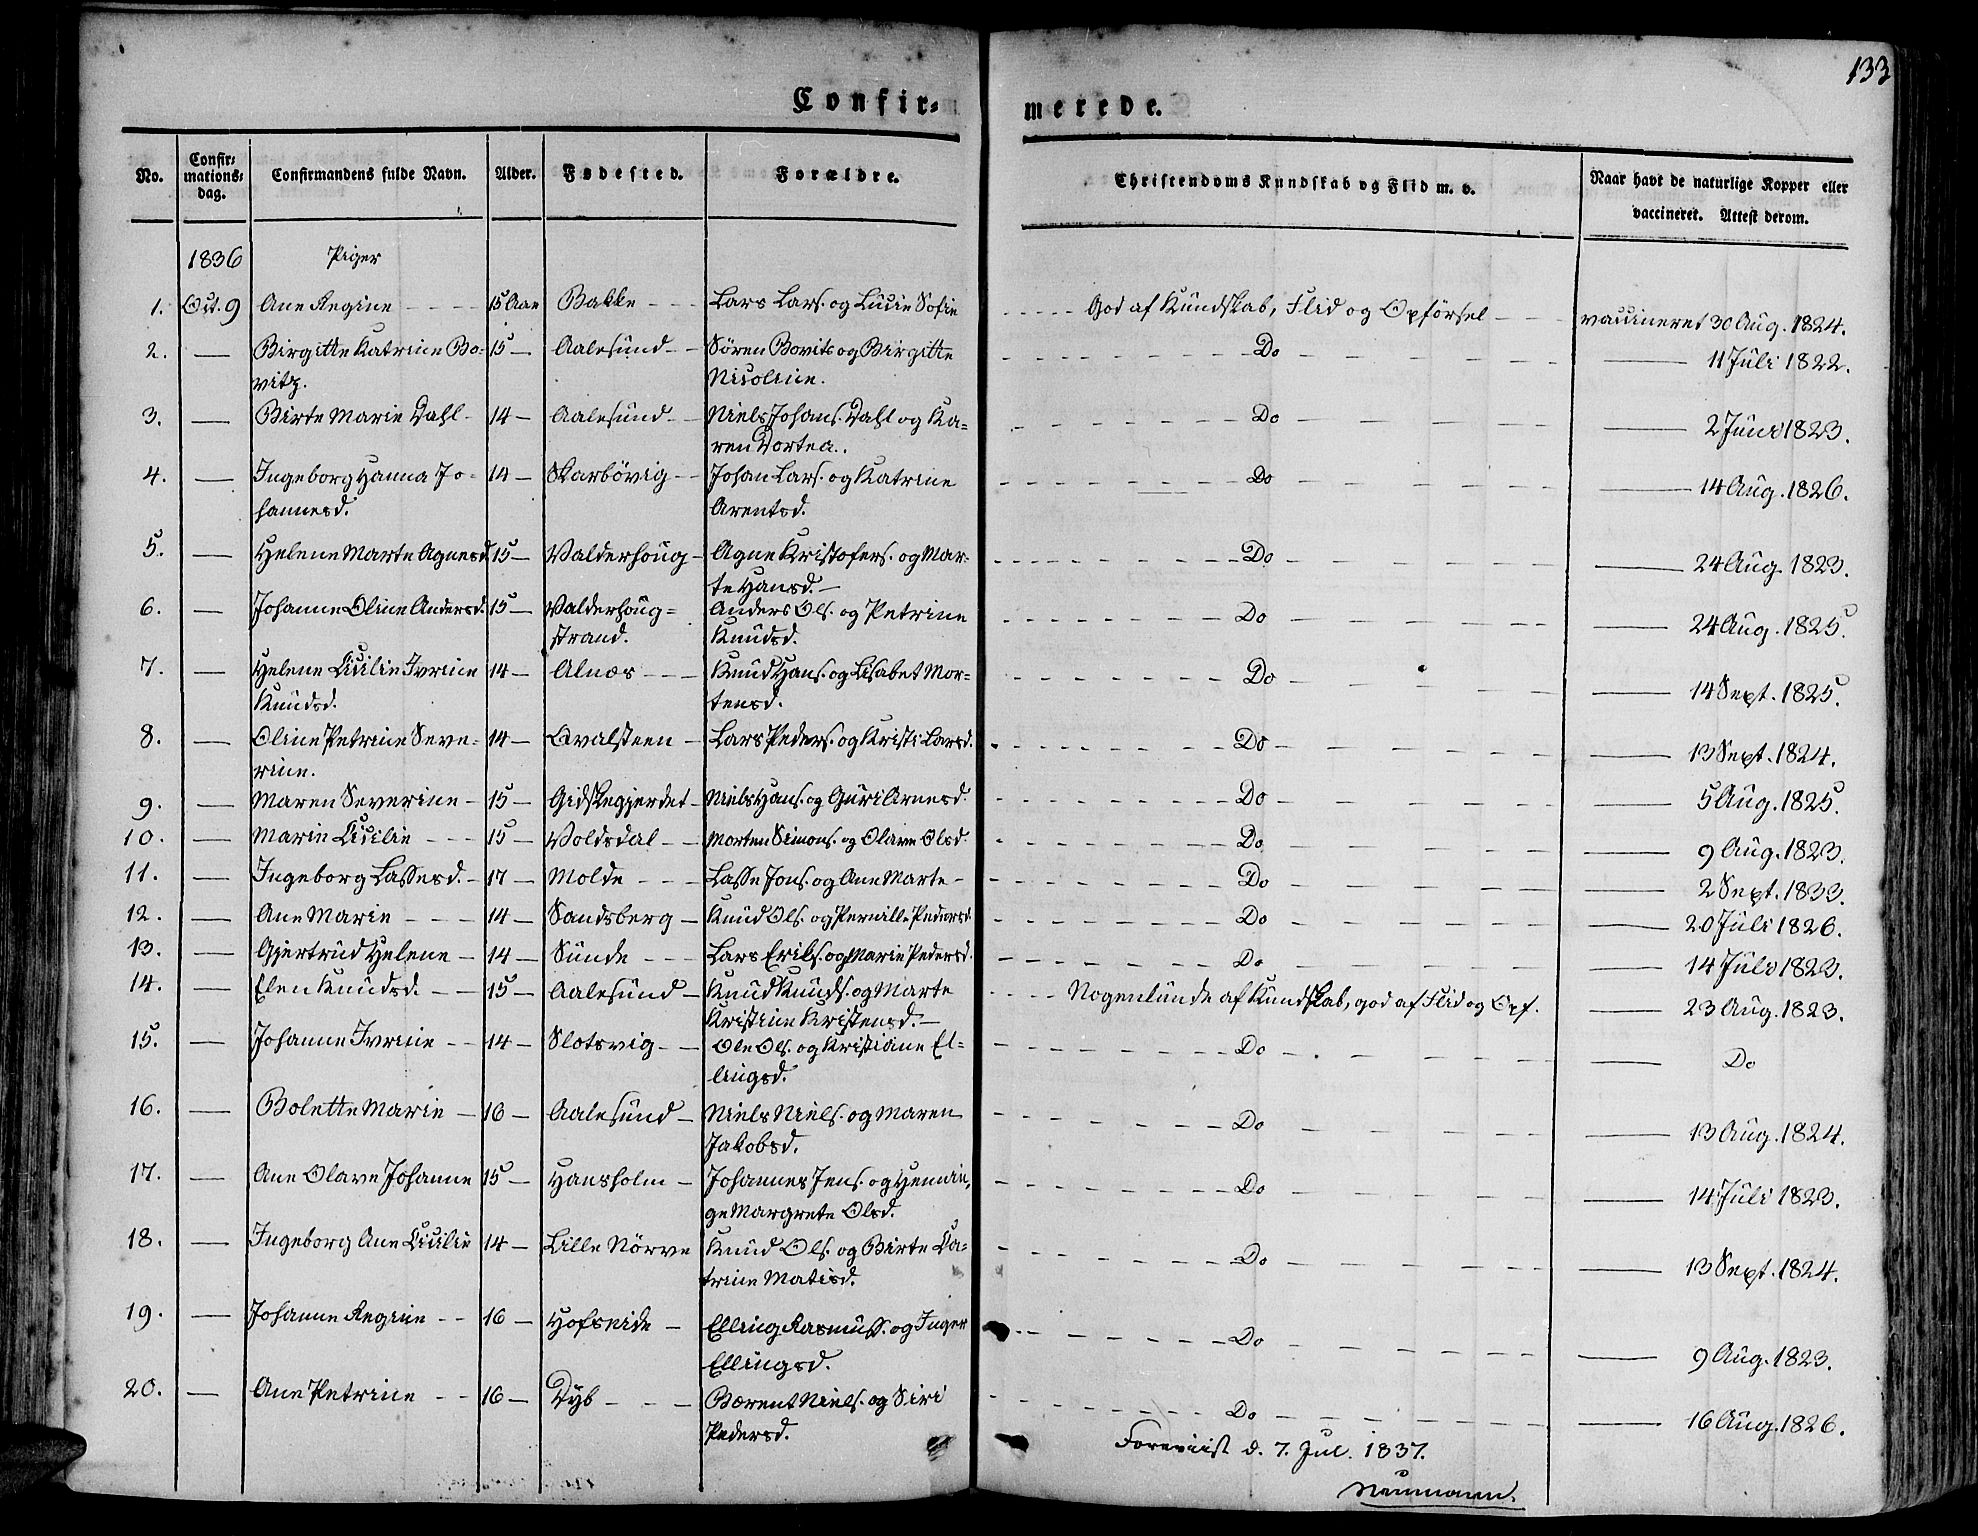 133
Confir=
merede.
No.
Confir=
mations=
dag.
Confirmandens fulde Navn.
Alder.
Fødested.
Forældre.
Christendoms Kundskab og Flid m. v.
Naar havt de naturlige Kopper eller
vaccineret. Attest derom.
1836 Piger
1. Oct. 9 Ane Regine - - - 15 Aar Bakke - - - Lars Lars. og Lucie Sofie - - - - - God af Kundskab, Flid og Opførsel - - vaccineret 30 Aug. 1824.
2. — Birgitte Katrine Bo- 15 — Aalesund - - Søren Bovitz og Birgitte - - - Do - - - — 11 Juli 1822.
vitz. Nicoline.
3. — Birte Marie Dahl - 14 — Aalesund - - Niels Johans. Dahl og Ka= - - - Do - - - — 2 Juni 1823.
ren Dortea.
4. — Ingeborg Hanna Jo= 14 — Skarbövig - - Johan Lars. og Katrine - - - Do - - - — 14 Aug. 1826.
hannesd. Arentsd.
5. — Helene Marte Agnesd. 15 — Valderhoug - Agne Kristofers. og Mar= - - - Do - - - — 24 Aug. 1823.
te Hansd. —
6. — Johanne Oline Andersd. 15 — Valderhoug= Anders Ols. og Petrine - - - Do - - - — 24 Aug. 1825.
strand. Knudsd.
7. — Helene Cicilie Ivrine 14 — Alnæs - - - Knud Hans. og Lisabet Mor= - - - Do - - - — 14 Sept. 1825.
Knudsd. tensd.
8. — Oline Petrine Seve= 14 — Qvalsteen - Lars Peders. og Kristi Larsd. - - - Do - - - — 13 Sept. 1824.
rine.
9. — Maren Severine - 15 — Gidskegjerdet - Niels Hans. og Guri Arnesd. - - - Do - - - — 5 Aug. 1825.
10. — Marie Cicilie - - - 15 — Voldsdal - - Morten Simons. og Olave Olsd. - - - Do - - - — 9 Aug. 1823.
11. — Ingeborg Lassesd. - 17 — Molde - - - Lasse Jons. og Ane Marte - - - - Do - - - — 2 Sept. 1833.
12. — Ane Marie - - - 14 — Sandsberg - Knud Ols. og Pernille Pedersd. - - - Do - - - — 20 Juli 1826.
13. — Gjertrud Helene - 14 — Sunde - - - Lars Eriks. og Marie Pedersd. - - - Do - - - — 14 Juli 1823.
14. — Elen Knudsd. - - 15 — Aalesund - Knud Knuds. og Marte - - - - Nogenlunde af Kundskab, god af Flid og Opf. — 23 Aug. 1823.
Kristine Kristensd. —
15. — Johanne Ivrine - - 14 — Slotsvig - - Ole Ols. og Kristiane El= - - - Do - - - — Do
lingsd.
16. — Bolette Marie - 16 — Aalesund - Niels Niels. og Maren - - - Do - - - — 13 Aug. 1824.
Jakobsd.
17. — Ane Olave Johanne 15 — Hansholm - Johannes Jens. og - - - Do - - - — 14 Juli 1823.
ge Margrete Olsd.
18. — Ingeborg Ane Cicilie 14 — Lille Nörve Knud Ols. og Birte Ca= - - - Do - - - — 13 Sept. 1824.
trine Matisd.
19. — Johanne Regine - - 16 — Hofseide - Elling Rasmuss. og Inger - - - Do - - - — 9 Aug. 1823.
Ellingsd.
20. — Ane Petrine - - 16 — Dyb - - - Bærent Niels. og Siri - - - Do - - - — 16 Aug. 1826.
Pedersd.
Foreviist d. 7. Jul. 1837.
Neumann.